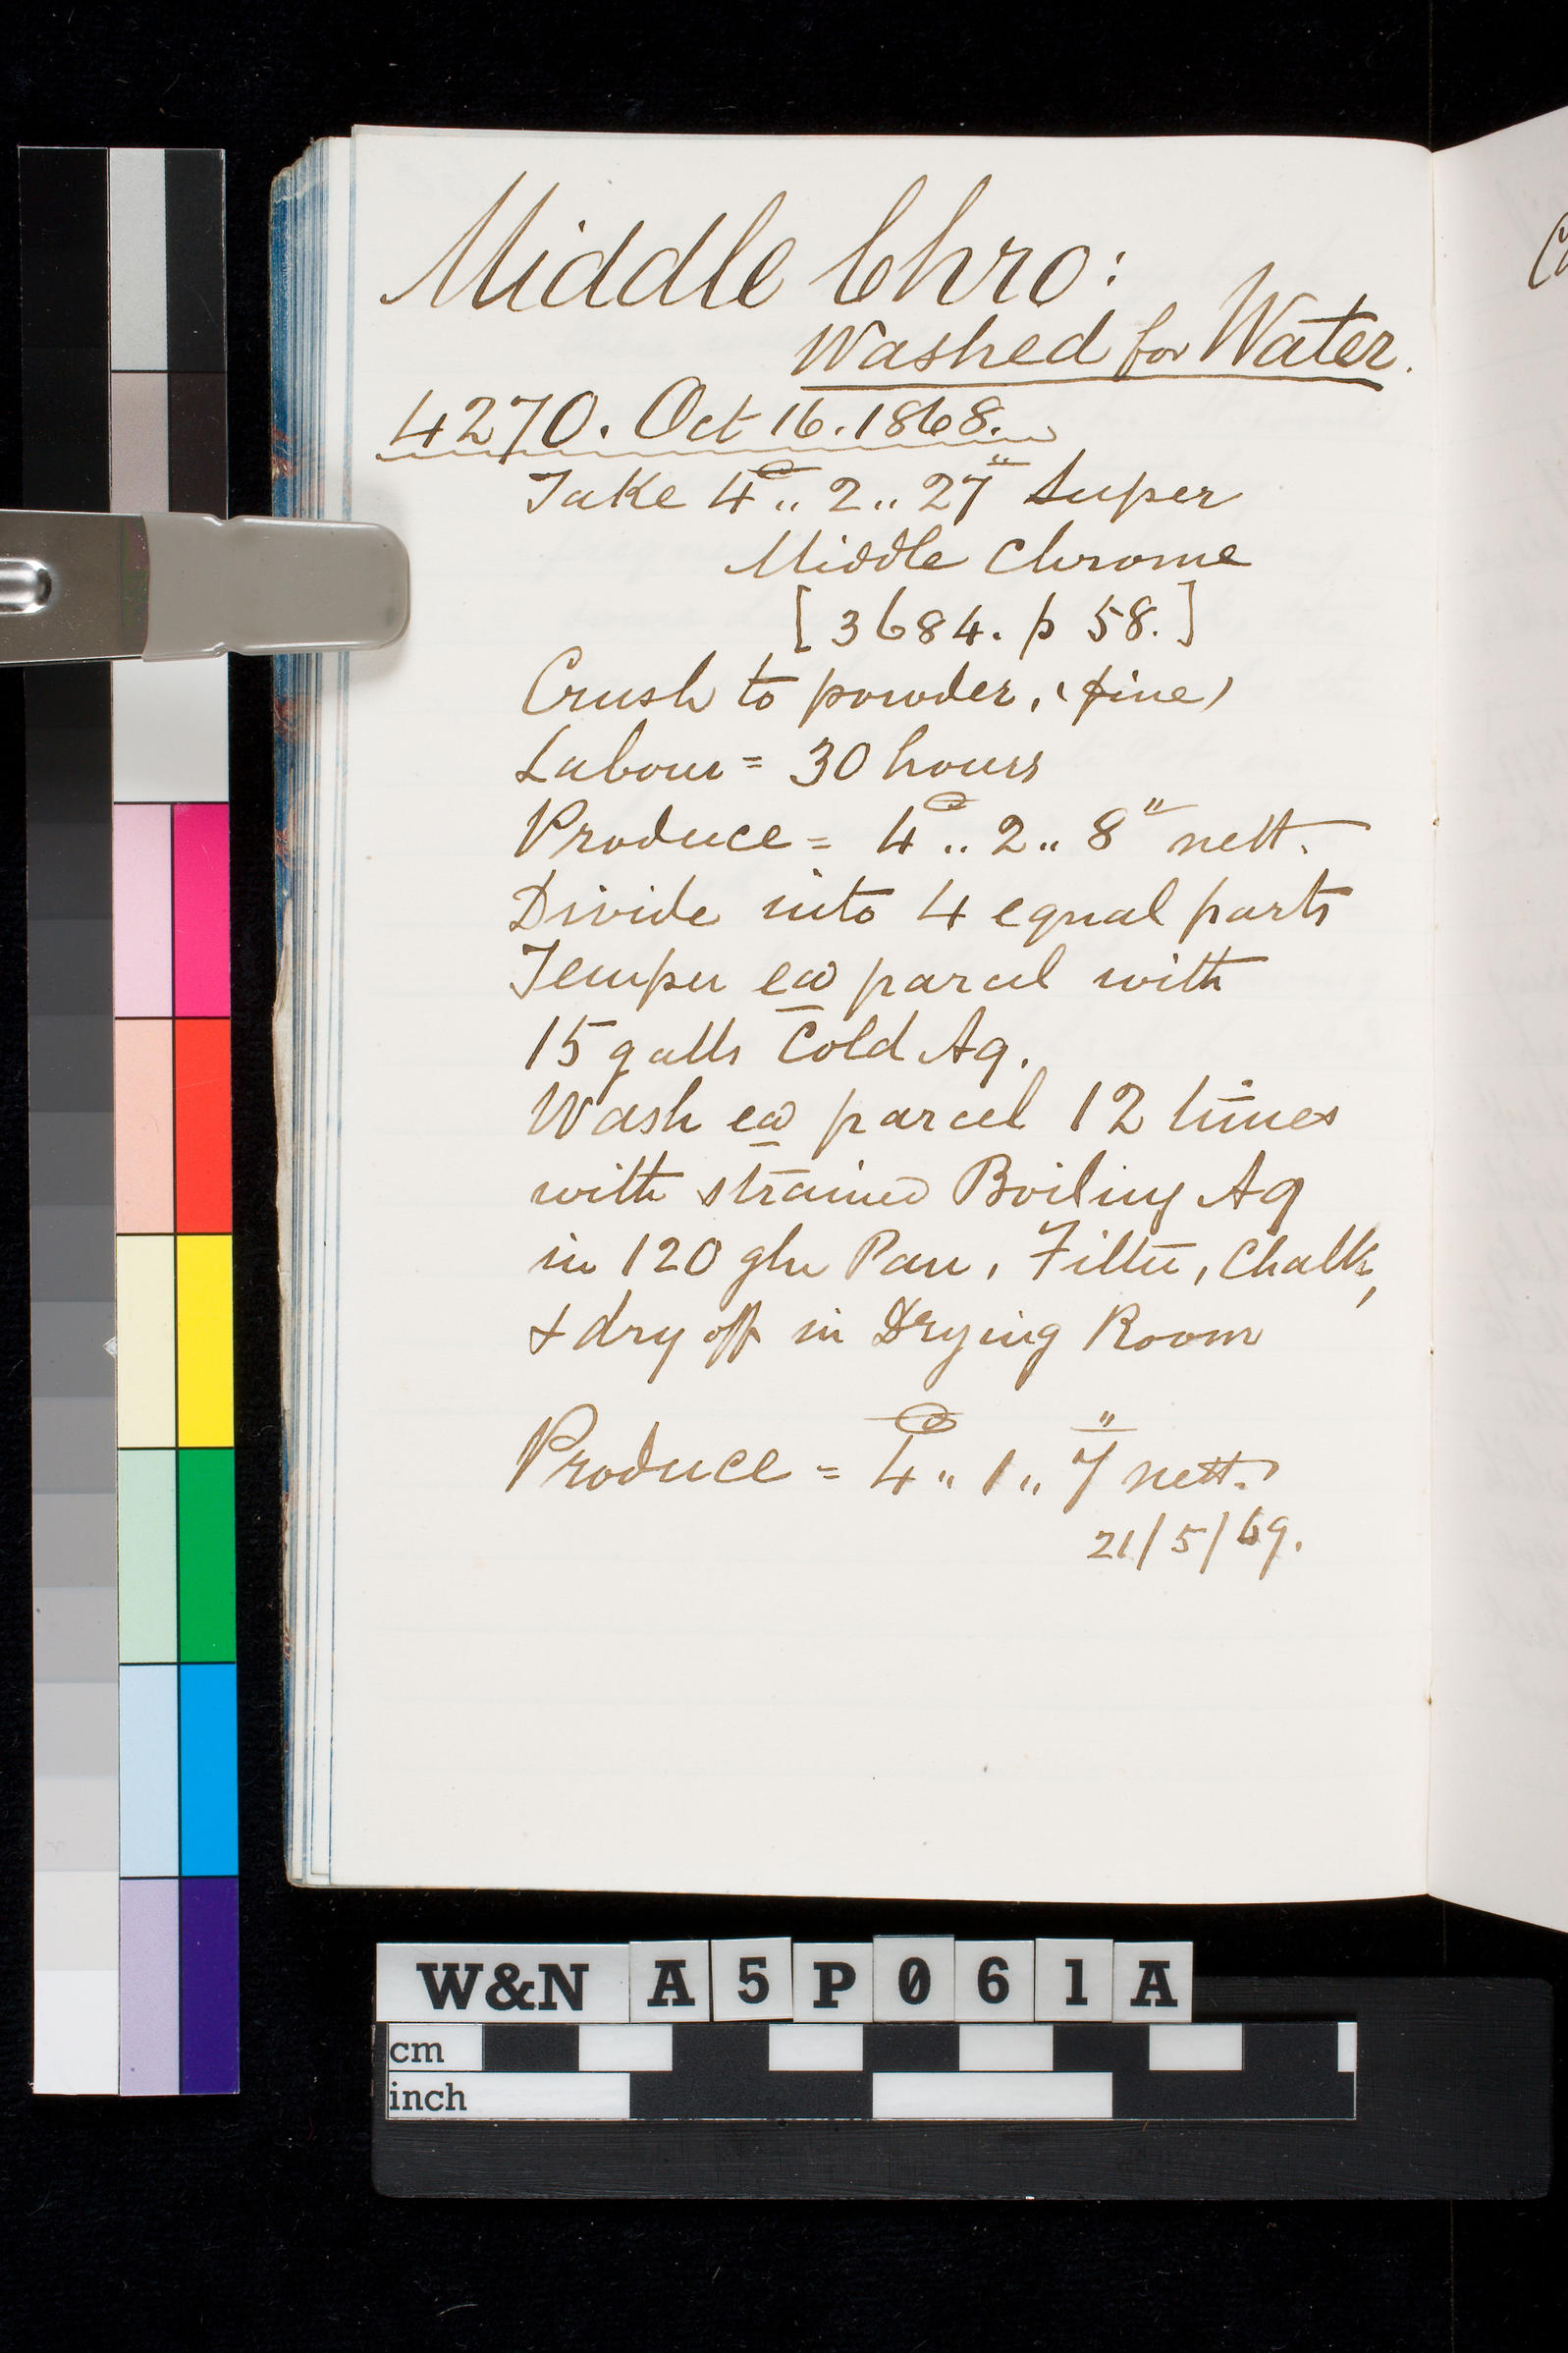 Middle Chro:
Washed for Water.
4270. Oct 16. 1868.
Take 4 .. 2 .. 27 " Super
Middle Chrome
[3684. p 58.]
Crush to powder, (fine)
Labour = 30 hours
Produce = 4 .. 2 .. 8 " nett.
Divide into 4 equal parts
Temper ea parcel with
15 galls Cold Aq.
Wash ea parcel 12 times
with strained Boiling Aq
in 120 gln Pan, Filter, Chalk,
& dry off in Drying Room
Produce = 4 .. 1 .. 7 " nett.
21/5/69.
W&N A5P061A
cm
inch